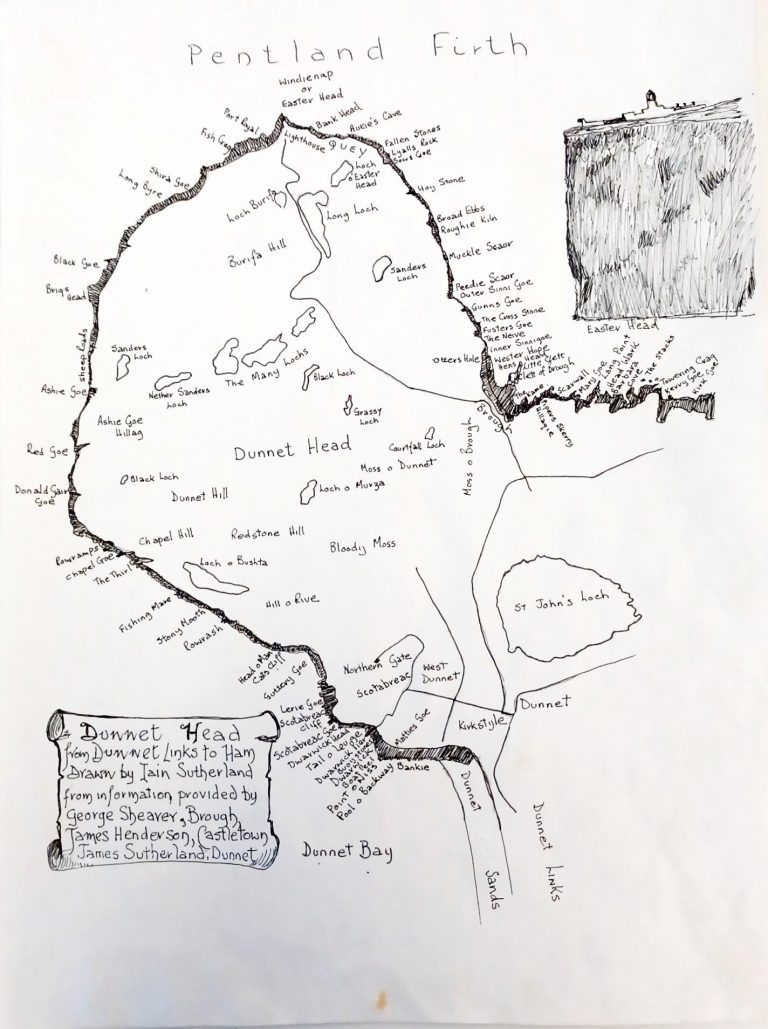 Pentland Firth
Windienap
or
Easter Head
Port Royal
Fish Goe
Shira Goe
Long Byre
Black Goe
Brigs
Head
Sheep Gads
Ashie Goe
Red Goe
Donald Gair
Goe
Rowramps
Chapel Goe
The Thirl
Fishing Mare
Stony Mooth
Powrash
Head o Man
Cats Cliff
Guttery Goe
Lerie Goe
Scotabreac
Cliff
Scotabreac Goe
Dwarwick Head
Tail o
Dwarwick
Point o Ness
Pool o Backway
Bankie
Matties Goe
Lighthouse
QUEY
Bank Head
Aukie's Cave
Fallen Stones
Lyalls Rock
Sows Goe
Hoy Stone
Broad Ebbs
Roughie Kiln
Muckle Scaor
Peedie Scaor
Outer Sinni Goe
Gunns Goe
The Cross Stone
Fusters Goe
The Neive
Inner Sinnigoe
Wester Hope
Otters Hole
Hens
Little Clett
Clett of Brough
Scarwall
Mans Goe
Long Point
Head o Wark
The Stacks
Towering Craig
Kerry Goe
Kirk Goe
Skerry
Brough
Loch
o Easter
Head
Loch Burifa
Long Loch
Burifa Hill
Sanders
Loch
Sanders
Loch
Nether Sanders
Loch
The Many Lochs
Black Loch
Grassy
Loch
Ashie Goe
Hillag
Dunnet Head
Courtfall Loch
Moss o Dunnet
Moss o Brough
Black Loch
Dunnet Hill
Loch o Murza
Chapel Hill
Redstone Hill
Bloody Moss
Loch o Bushta
Hill o Rive
St John's Loch
Northern Gate
Scotabreac
West
Dunnet
Dunnet
Kirkstyle
Dunnet
Sands
Dunnet
Links
Dunnet Bay
Easter Head
Dunnet Head
from Dunnet Links to Ham
Drawn by Iain Sutherland
from information provided by
George Shearer, Brough,
James Henderson, Castletown
James Sutherland, Dunnet